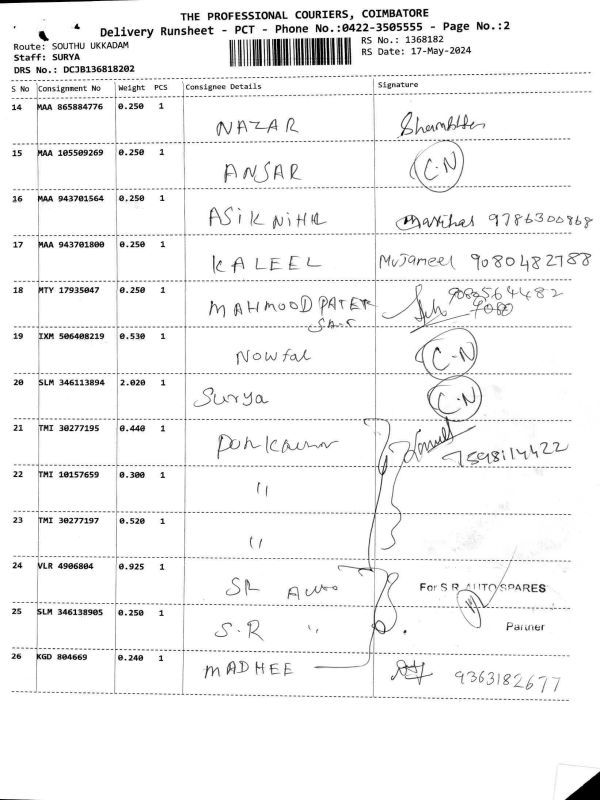 THE PROFESSIONAL COURIERS, COIMBATORE
Delivery Runsheet - PCT - Phone No.:0422-3505555 - Page No.:2
Route: SOUTHU UKKADAM
RS No.: 1368182
Staff: SURYA
RS Date: 17-May-2024
DRS No.: DCJB136818202
S No Consignment No Weight PCS Consignee Details Signature
14 MAA 865884776 0.250 1 NAZAR
15 MAA 105509269 0.250 1 ANSAR C.N
16 MAA 943701564 0.250 1 ASIK NIHR 9786300868
17 MAA 943701800 0.250 1 KALEEL MuJameel 9080482788
18 MTY 17935047 0.250 1 MAHMOOD PATER
19 IXM 506408219 0.530 1 Nowfal C-N
20 SLM 346113894 2.020 1 Surya C-N
21 TMI 30277195 0.440 1 7598114422
22 TMI 10157659 0.300 1 "
23 TMI 30277197 0.520 1 "
24 VLR 4906804 0.925 1 SR Auto For S R AUTO SPARES
25 SLM 346138905 0.250 1 S.R " Partner
26 KGD 804669 0.240 1 MADHEE 9363182677